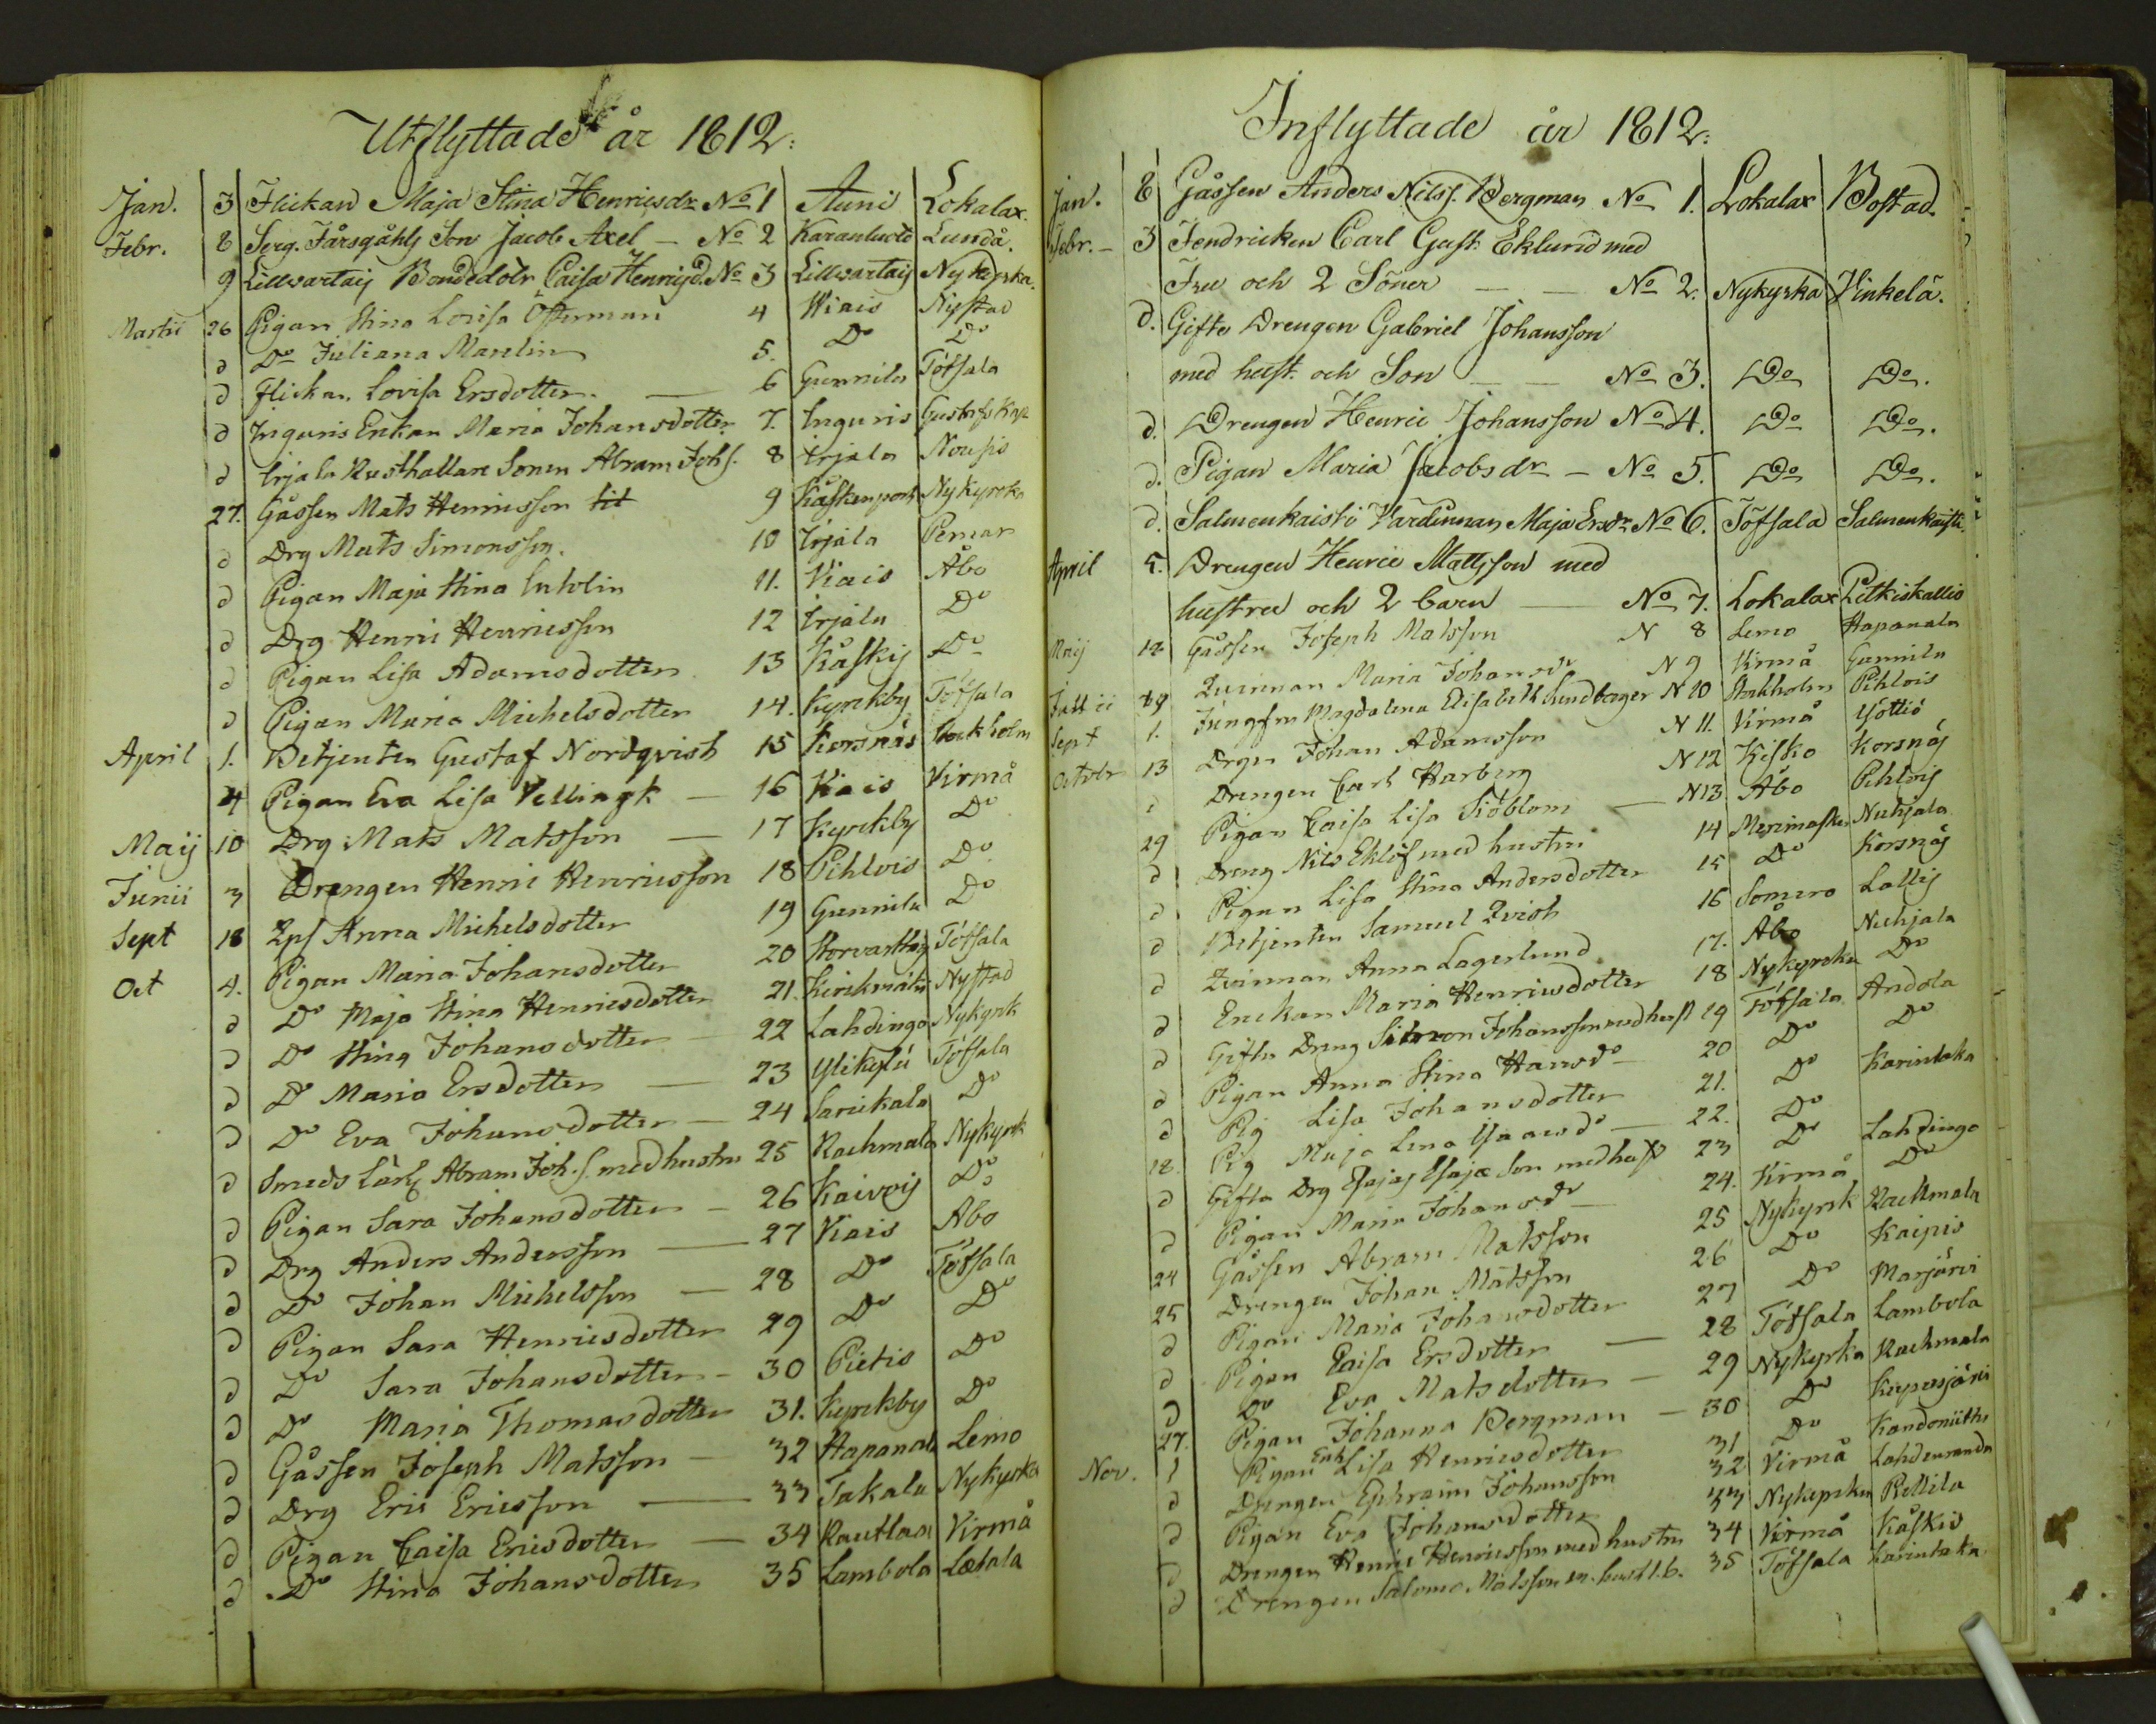 Utflyttade år 1812.
Jan. 3 Flickan Maja Stina Henricsdr No 1 Auni Lokalax.
Febr. 8 Serg. Jårsgåhls Son Jacob Axel - No 2 Karanluoto Lundå.
9 Lillvartaij Bondedotr Caisa Henrijsd. No 3 Lillvartaij Nykyrka.
Martii 26 Pigan Stina Lovisa Österman 4 Wiais Nystad
d Do Juliana Maulin 5. Do Do
d Flickan Lovisa Ersdotter. 6 Gunnila Töfsala
d Inguris Enkan Maria Johansdotter 7. Inguris Gustafs Kap
d Irjala Rusthållare Sonen Abram Johs. 8 Irjala Nousis
27. Gåssen Mats Henricsson 9 Kaskenpert Nykyrcka
d Drg Mats Simonsson. 10 Irjala Pemar
d Pigan Maja Stina 11. Viais Åbo
d Drg Henric Henricsson 12 Irjala Do
d Pigan Lisa Adamsdotter 13 Kåskis Do
d Pigan Maria Michelsdotter 14. Kyrckby Töfsala
April 1. Betjenten Gustaf Nordqvist 15 Korsnäs Stockholm
4 Pigan Eva Lisa Vellingk - 16 Viais Virmå
Maij 10 Drg Mats Matsson - 17 Kyrckby Do
Junii 3 Drengen Henric Henricsson 18 Pihlois Do
Sept 18 Anna Michelsdotter 19 Gunnila Do
Oct 4. Pigan Maria Johansdotter 20 Storvarttaij Töfsala
d Do Maja Stina Henricsdotter 21. Kirckmäki Nystad
d Do Stina Johansdotter - 22 Lahdinga Nykyrk
d Do Maria Ersdotter - 23 Ylikylä Töfsala
d Do Eva Johansdotter - 24 Sarickala Do
d Smeds Lärl Abram Joh.s. med hustru 25 Rackmala Nykyrk
d Pigan Sara Johansdotter - 26 Kaivois Do
d Drg Anders Andersson - 27 Viais Åbo
d Do Johan Michelsson - 28 Do Töfsala
d Pigan Sara Henricsdotter 29 Do Do
d Do Sara Johansdotter - 30 Pietis Do
d Do Maria Thomasdotter 31. Kyrckby Do
d Gåssen Joseph Matsson - 32 Hapanala Lemo
d Drg Eric Ericsson - 33 Takala Nykyrka
d Pigan Caisa Ericsdotter - 34 Rautlax Virmå
d Do Stina Johansdotter 35 Lambola Letala
Inflyttade år 1812.
Jan. 8 Gåssen Anders Nilss. Bergman No 1. Lokalax Bostad.
Febr. - 3 Fendricken Carl Gust. Eklund med
Fru och 2 Söner - - No 2. Nykyrka Vinkelä.
d. Gifte Drengen Gabriel Johansson
med hust. och Son - - No 3. Do Do.
d. Drengen Henric Johansson No 4. Do Do.
d. Pigan Maria Jacobsdr - No 5. Do Do.
d. Salmenkaisti Värdinnan Maja Ersdr No 6. Töfsala Salmenkaisti.
April 5. Drengen Henric Mattsson med
hustru och 2 barn - No 7. Lokalax Pitkiskallio
Maij 12 Gåssen Joseph Matsson N 8 Lemo Hapanala
Qvinnan Maria Johansdr N 9 Virmå Gunnila
19 Jungfru Magdalena Elisabeth Sundberger N 10 Stockholm Pihlois
Sept 1. Drgen Johan Adamsson N 11. Virmå
Octobr 13 Drengen Carl Harberg N 12 Kisko Korsnäs
d Pigan Caisa Lisa Siöblom - N 13 Åbo Pihlois
29 Dreng Nils Eklöf med hustru 14 Merimasku Nuhjala
d Pigan Lisa Stina Andersdotter 15 Do Korsnäs
d Betjenten Samuel Qvist 16 Somero Lallis
d Qvinnan Anna Lagerlund 17. Åbo Nuhjala
d Enckan Maria Henricsdotter 18 Nykyrcka Do
d Gifte Dreng Simon Johansson med hust 19 Töfsala Andola
d Pigan Anna Stina Hansdr - 20 Do Do
d Pig Lisa Johansdotter 21. Do Karintaka
18. Pig Maja Lena Isaacsdr - 22. Do
d Gifta Drg Esajas Esajæ Son med hust 23 Do Lahdinga
d Pigan Maria Johansdr - 24. Virmå Do
24 Gåssen Abram Matsson 25 Nykyrk Rackmala
25 Drengen Johan Matsson 26 Do Kaipis
d Pigan Maria Johansdotter 27 Do Marjärvi
d Pigan Caisa Ersdotter - 28 Töfsala Lambola
d Do Eva Matsdotter - 29 Nykyrka Rackmala
27. Pigan Johanna Bergman - 30 Do
Nov. 1 Pigan Lisa Henricsdotter 31 Do
d Drengen Ephraim Johansson 32 Virmå Lahdenranda
d Pigan Eva Johansdotter 33 Nykyrka Pettila
d Drengen Henric Henricsson med hustru 34 Virmå Kåskis
d Drengen Salomo Matsson m. hust 1. b. 35 Töfsala Karintaka